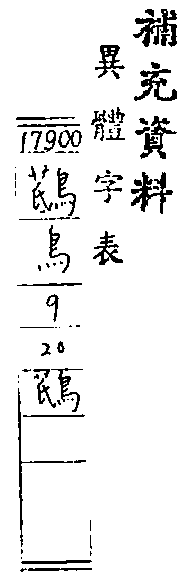 補充資料
異體字表
17900
鳥
9
20